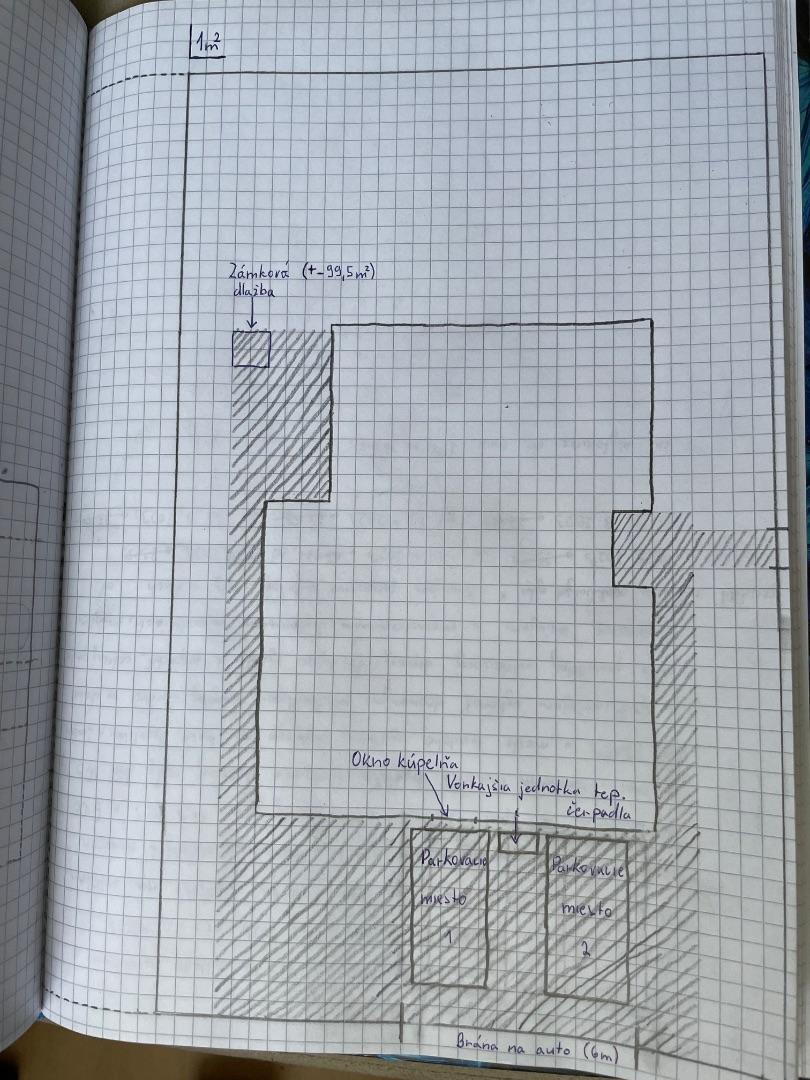 1m²
Zámková (+-99,5m²)
dlažba
Okno kúpelňa
Vonkajšia jednotka tep.
čerpadla
Parkovacie
miesto
1
Parkovacie
miesto
2
Brána na auto (6m)